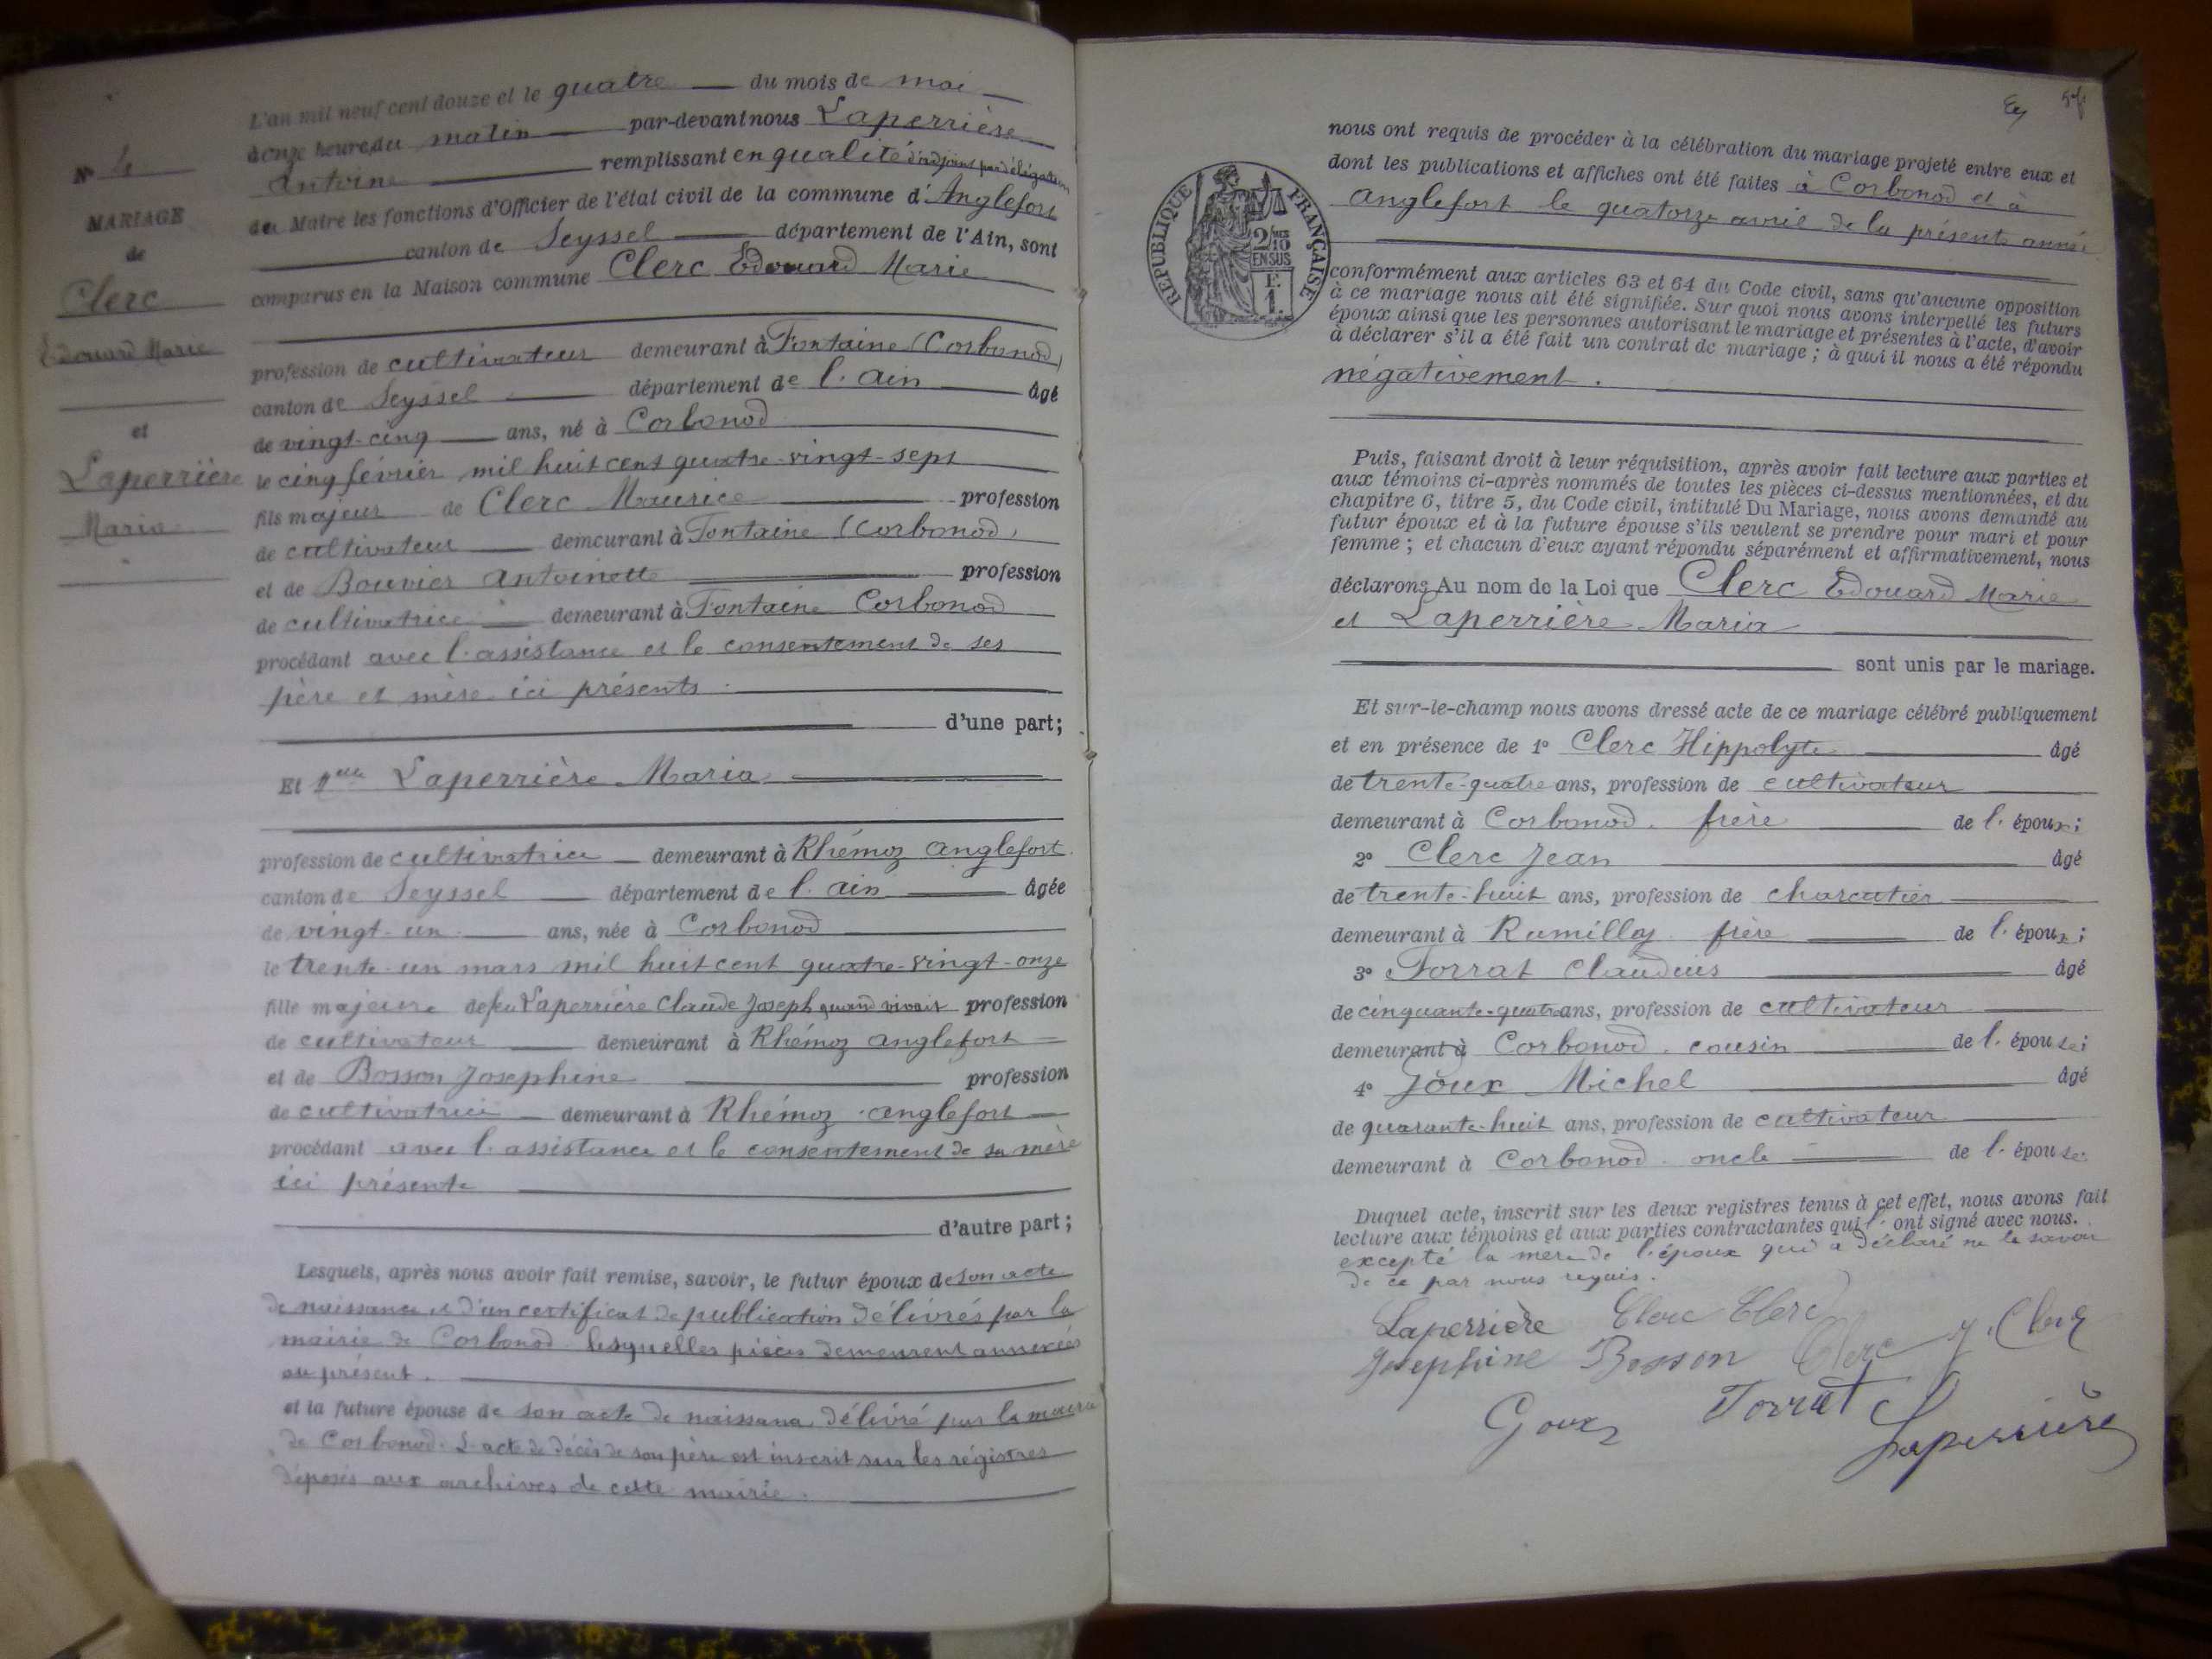 L'an mil neuf cent douze et le quatre du mois de mai
à onze heure du matin par-devant nous Laperrière
Antoine remplissant en qualité d'adjoint par délégation
du Maire les fonctions d'Officier de l'état civil de la commune d'Anglefort
canton de Seyssel département de l'Ain, sont
comparus en la Maison commune Clerc Edouard Marie
profession de cultivateur demeurant à Fontaine (Corbonod)
canton de Seyssel département de l'Ain âgé
de vingt-cinq ans, né à Corbonod
le cinq février mil huit cent quatre-vingt-sept
fils majeur de Clerc Maurice profession
de cultivateur demeurant à Fontaine (Corbonod)
et de Bouvier Antoinette profession
de cultivatrice demeurant à Fontaine Corbonod
procédant avec l'assistance et le consentement de ses
père et mère ici présents.
d'une part;
Et Melle Laperrière Maria
profession de cultivatrice demeurant à Rhémoz Anglefort.
canton de Seyssel département de l'Ain âgée
de vingt-un ans, née à Corbonod
le trente-un mars mil huit cent quatre-vingt-onze
fille majeure de feu Laperrière Claude Joseph quand vivait profession
de cultivateur demeurant à Rhémoz Anglefort
et de Bosson Josephine profession
de cultivatrice demeurant à Rhémoz Anglefort
procédant avec l'assistance et le consentement de sa mère
ici présente
d'autre part;
Lesquels, après nous avoir fait remise, savoir, le futur époux de son acte
de naissance et d'un certificat de publication délivrés par la
mairie de Corbonod lesquelles pièces demeurent annexées
au présent.
et la future épouse de son acte de naissance délivré par la mairie
de Corbonod. L'acte de décès de son père est inscrit sur les régistres
déposés aux archives de cette mairie.
N° 4
MARIAGE
de
Clerc
Edouard Marie
et
Laperrière
Maria
nous ont requis de procéder à la célébration du mariage projeté entre eux et
dont les publications et affiches ont été faites à Corbonod et à
Anglefort le quatorze avril de la présente année
REPUBLIQUE FRANÇAISE
2/10
EN SUS
F.
1.
conformément aux articles 63 et 64 du Code civil, sans qu'aucune opposition
à ce mariage nous ait été signifiée. Sur quoi nous avons interpellé les futurs
époux ainsi que les personnes autorisant le mariage et présentes à l'acte, d'avoir
à déclarer s'il a été fait un contrat de mariage; à quoi il nous a été répondu
négativement.
Puis, faisant droit à leur réquisition, après avoir fait lecture aux parties et
aux témoins ci-après nommés de toutes les pièces ci-dessus mentionnées, et du
chapitre 6, titre 5, du Code civil, intitulé Du Mariage, nous avons demandé au
futur époux et à la future épouse s'ils veulent se prendre pour mari et pour
femme; et chacun d'eux ayant répondu séparément et affirmativement, nous
déclarons Au nom de la Loi que Clerc Edouard Marie
et Laperrière Maria
sont unis par le mariage.
Et sur-le-champ nous avons dressé acte de ce mariage célébré publiquement
et en présence de 1° Clerc Hippolyte âgé
de trente-quatre ans, profession de cultivateur
demeurant à Corbonod. frère de l'époux;
2° Clerc Jean âgé
de trente-huit ans, profession de charcutier
demeurant à Rumilly frère de l'époux;
3° Forrat Claudius âgé
de cinquante-quatre ans, profession de cultivateur
demeurant à Corbonod. cousin de l'épouse;
4° Joux Michel âgé
de quarante-huit ans, profession de cultivateur
demeurant à Corbonod. oncle de l'épouse.
Duquel acte, inscrit sur les deux registres tenus à cet effet, nous avons fait
lecture aux témoins et aux parties contractantes qui l'ont signé avec nous.
excepté la mère de l'époux qui a déclaré ne le savoir
de ce par nous requis.
Laperrière Clerc Clerc
Josephine Bosson Clerc J. Clerc
Goux Forrat Laperrière